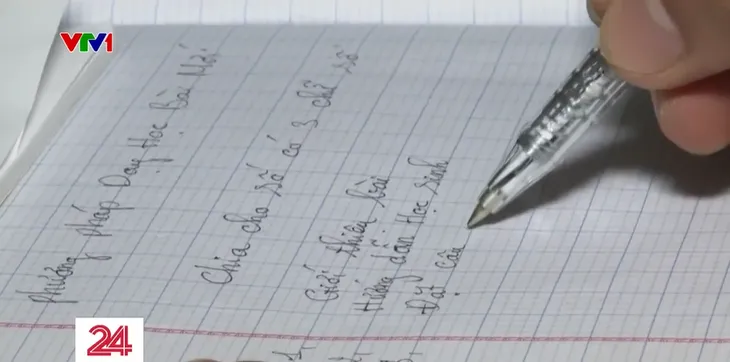 VTV1
Phương pháp Dạy Học Bài Mới
Chia cho số có 3 chữ số
Giới thiệu bài
Hướng dẫn Học sinh
Đặt câu
24